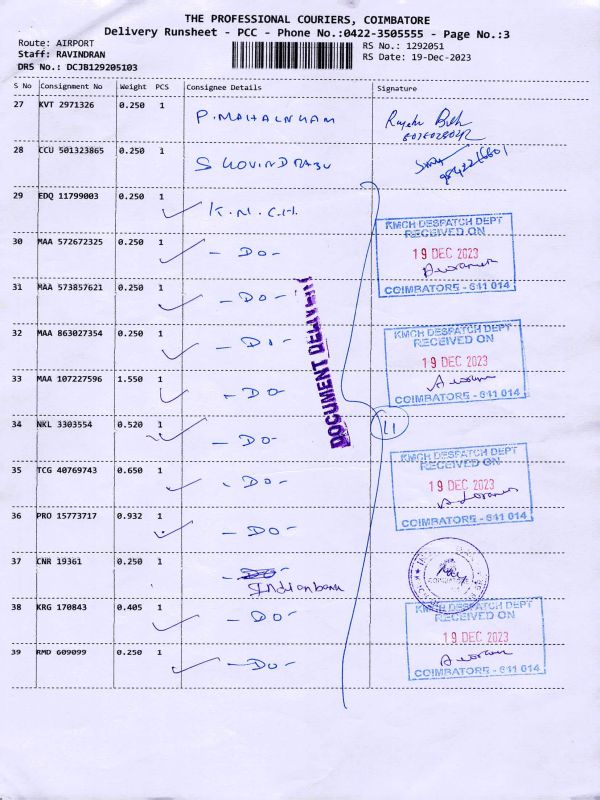 THE PROFESSIONAL COURIERS, COIMBATORE
Delivery Runsheet - PCC - Phone No.:0422-3505555 - Page No.:3
Route: AIRPORT
RS No.: 1292051
Staff: RAVINDRAN
RS Date: 19-Dec-2023
DRS No.: DCJB129205103
S No Consignment No Weight PCS Consignee Details Signature
27 KVT 2971326 0.250 1
28 CCU 501323865 0.250 1
29 EDQ 11799003 0.250 1 K.M.C.H.
30 MAA 572672325 0.250 1 - Do -
31 MAA 573857621 0.250 1 - Do -
32 MAA 863027354 0.250 1 - Do -
33 MAA 107227596 1.550 1 - Do -
34 NKL 3303554 0.520 1 - Do -
35 TCG 40769743 0.650 1 - Do -
36 PRO 15773717 0.932 1 - Do -
37 CNR 19361 0.250 1
Indian bank
38 KRG 170843 0.405 1 - Do -
39 RMD 609099 0.250 1 - Do -
DOCUMENT DELIVERY
11
KMCH DESPATCH DEPT
RECEIVED ON
19 DEC 2023
COIMBATORE - 641 014
KMCH DESPATCH DEPT
RECEIVED ON
19 DEC 2023
COIMBATORE - 641 014
KMCH DESPATCH DEPT
RECEIVED ON
19 DEC 2023
COIMBATORE - 641 014
COIMBATORE
KMCH DESPATCH DEPT
RECEIVED ON
19 DEC 2023
COIMBATORE - 641 014